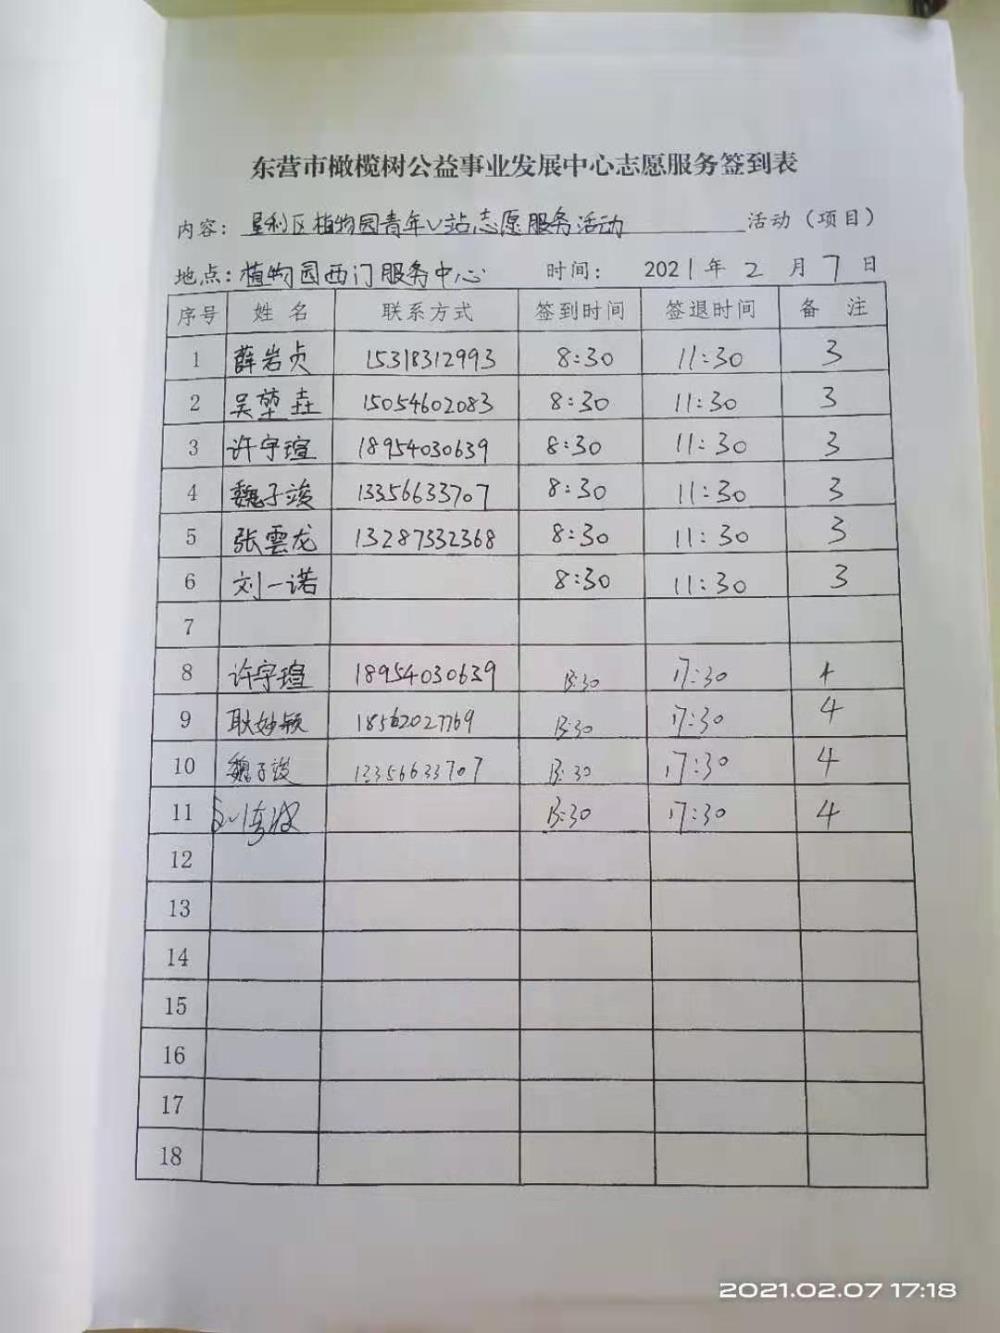 东营市橄榄树公益事业发展中心志愿服务签到表
内容：垦利区植物园青年V站志愿服务活动 活动（项目）
地点：植物园西门服务中心 时间： 2021年2月7日
序号 姓名 联系方式 签到时间 签退时间 备注
1 薛岩贞 15318312993 8:30 11:30 3
2 吴堃垚 15054602083 8:30 11:30 3
3 许宇瑄 18954030639 8:30 11:30 3
4 魏子竣 13356633707 8:30 11:30 3
5 张雲龙 13287332368 8:30 11:30 3
6 刘一诺 8:30 11:30 3
7
8 许宇瑄 18954030639 13:30 17:30 4
9 耿妙颖 18562027769 13:30 17:30 4
10 魏子竣 13356633707 13:30 17:30 4
11 13:30 17:30 4
12
13
14
15
16
17
18
2021.02.07 17:18